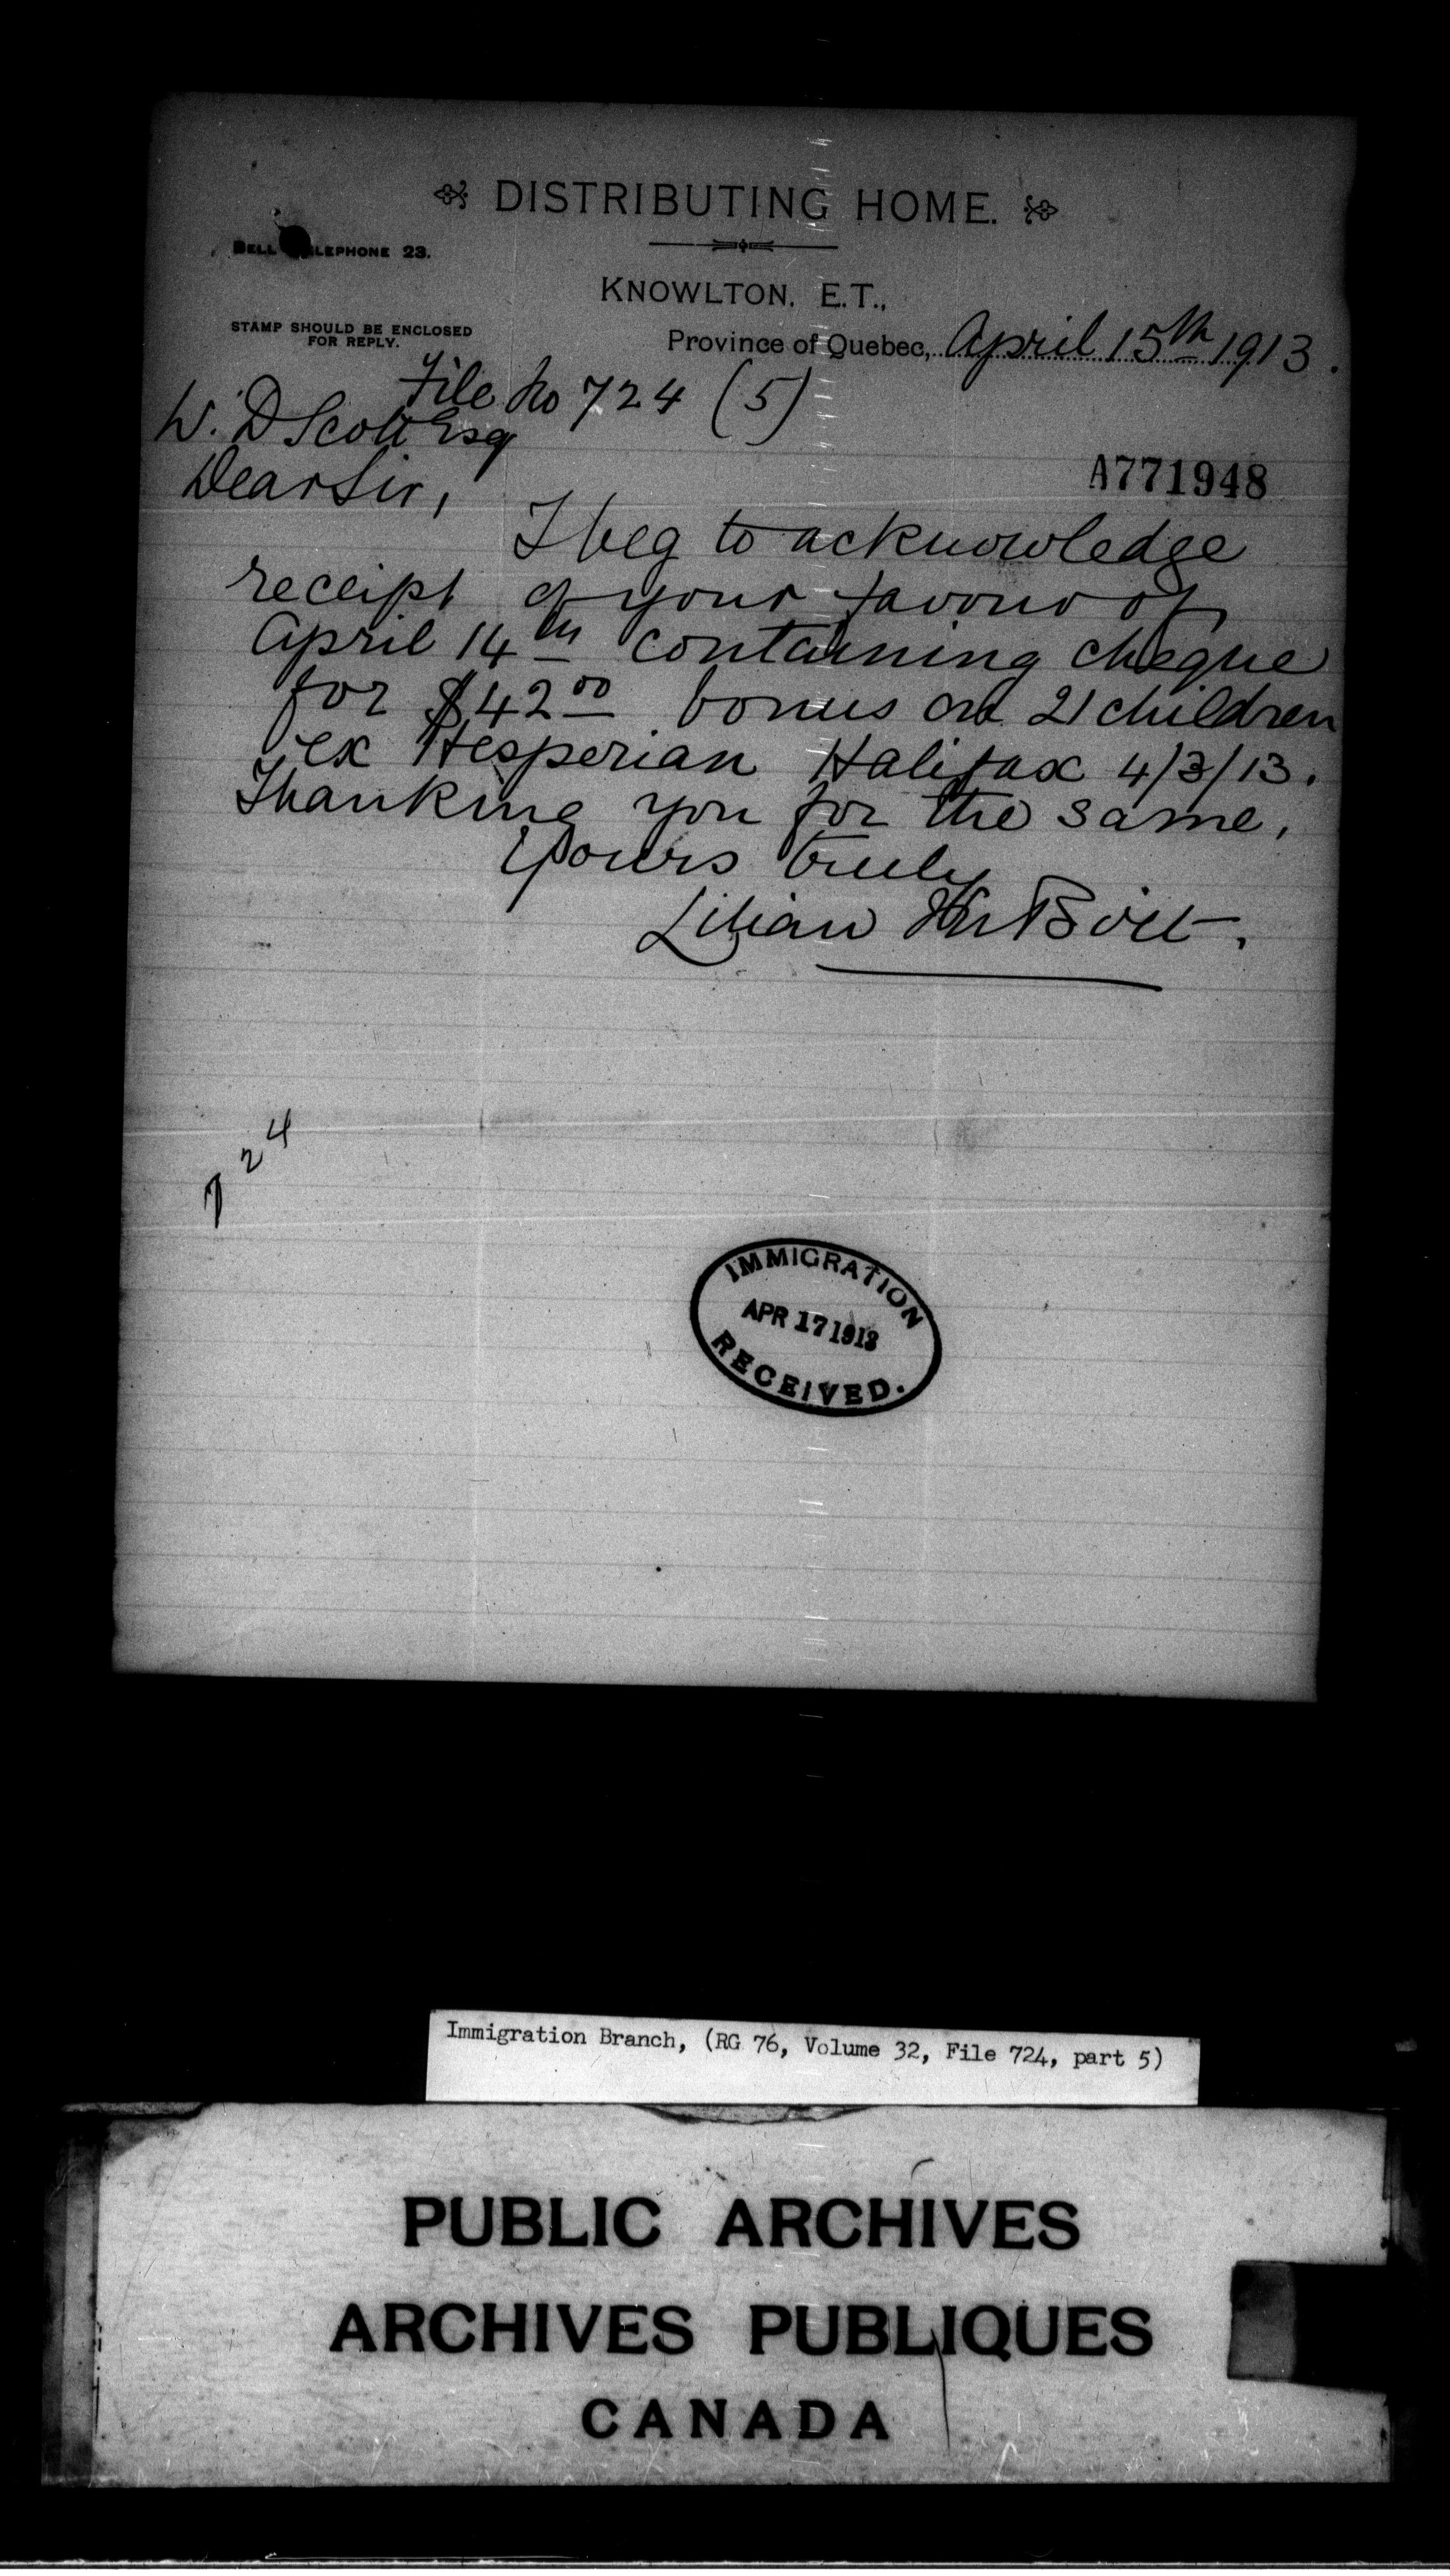 DISTRIBUTING HOME.
BELL TELEPHONE 23.
KNOWLTON, E.T.,
STAMP SHOULD BE ENCLOSED
FOR REPLY.
Province of Quebec, April 15th 1913.
File No 724 (5)
W. D Scott Esq
Dear Sir,
A771948
I beg to acknowledge
receipt of your favour of
April 14th containing cheque
for $42.00 bonus on 21 children
ex Hesperian Halifax 4/3/13.
Thanking you for the same,
Yours truly
Lilian M Birt.
724
IMMIGRATION
APR 17 1913
RECEIVED.
Immigration Branch, (RG 76, Volume 32, File 724, part 5)
PUBLIC ARCHIVES
ARCHIVES PUBLIQUES
CANADA